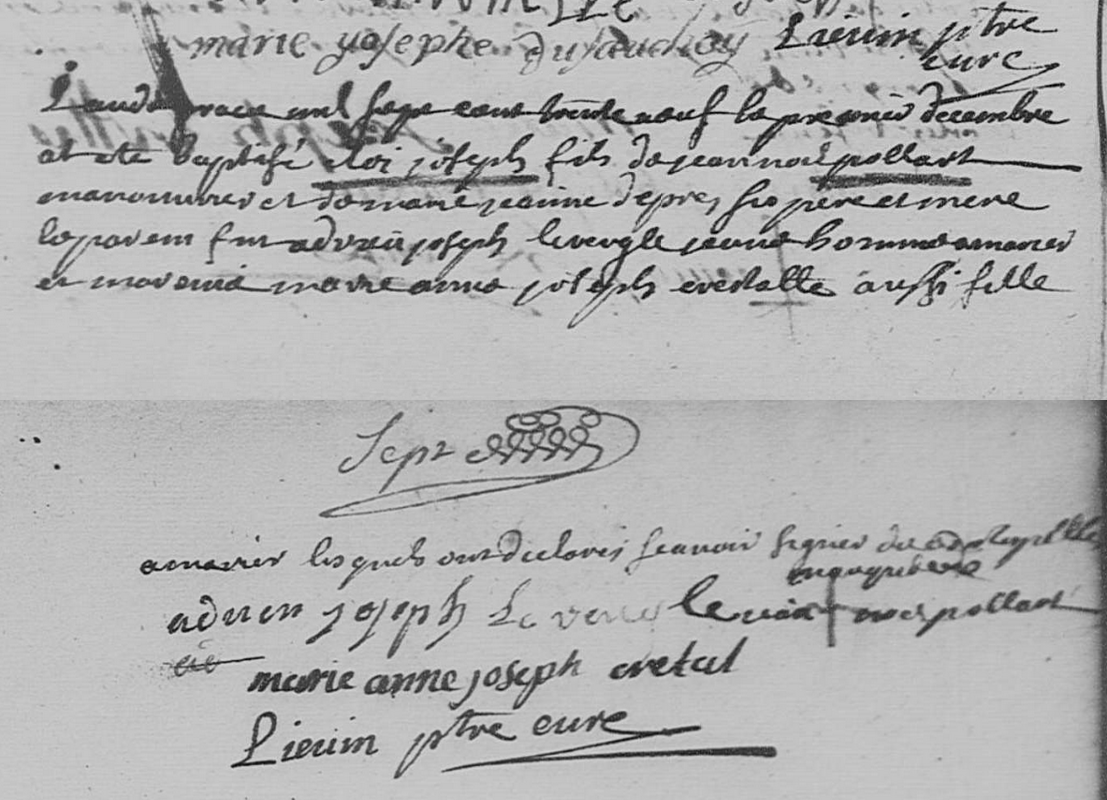 marie yosephe dufauchoy Lieuin ptre
cure
L'an de grace mil sept cent trente neuf le premier decembre
at ete baptisé eloi joseph fils de jean noel pollart
manouvrier et de marie jeanne depres ses pere et mere
le parein fut adrien joseph levergle jeune homme a marier
et mareine marie anne joseph cretalle aussi fille
Sept
a marier lesquels ont declarés scavoir signer
adrien joseph Le noel pollart
marie anne joseph cretal
Lieuin ptre cure